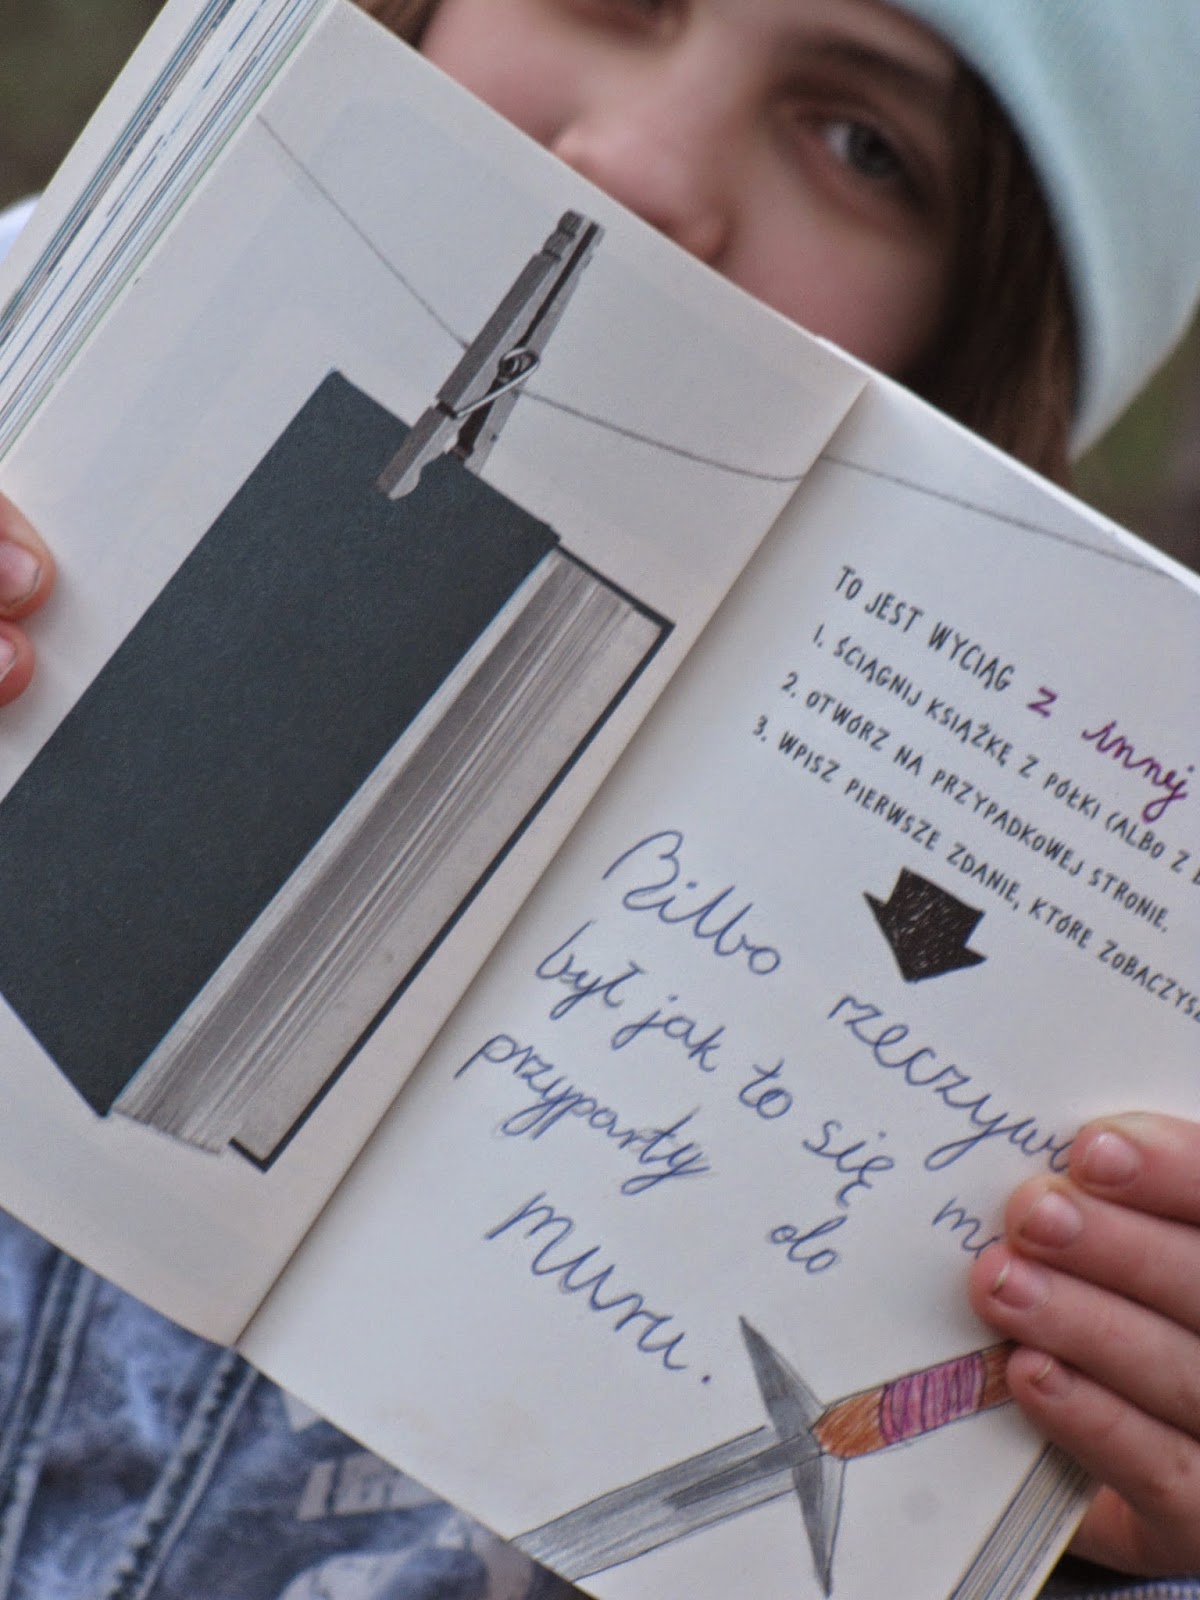 TO JEST WYCIĄG z innej
1. ŚCIĄGNIJ KSIĄŻKĘ Z PÓŁKI (ALBO Z
2. OTWÓRZ NA PRZYPADKOWEJ STRONIE.
3. WPISZ PIERWSZE ZDANIE, KTÓRE ZOBACZYSZ
Bilbo
był jak to się
przyparty do
muru.